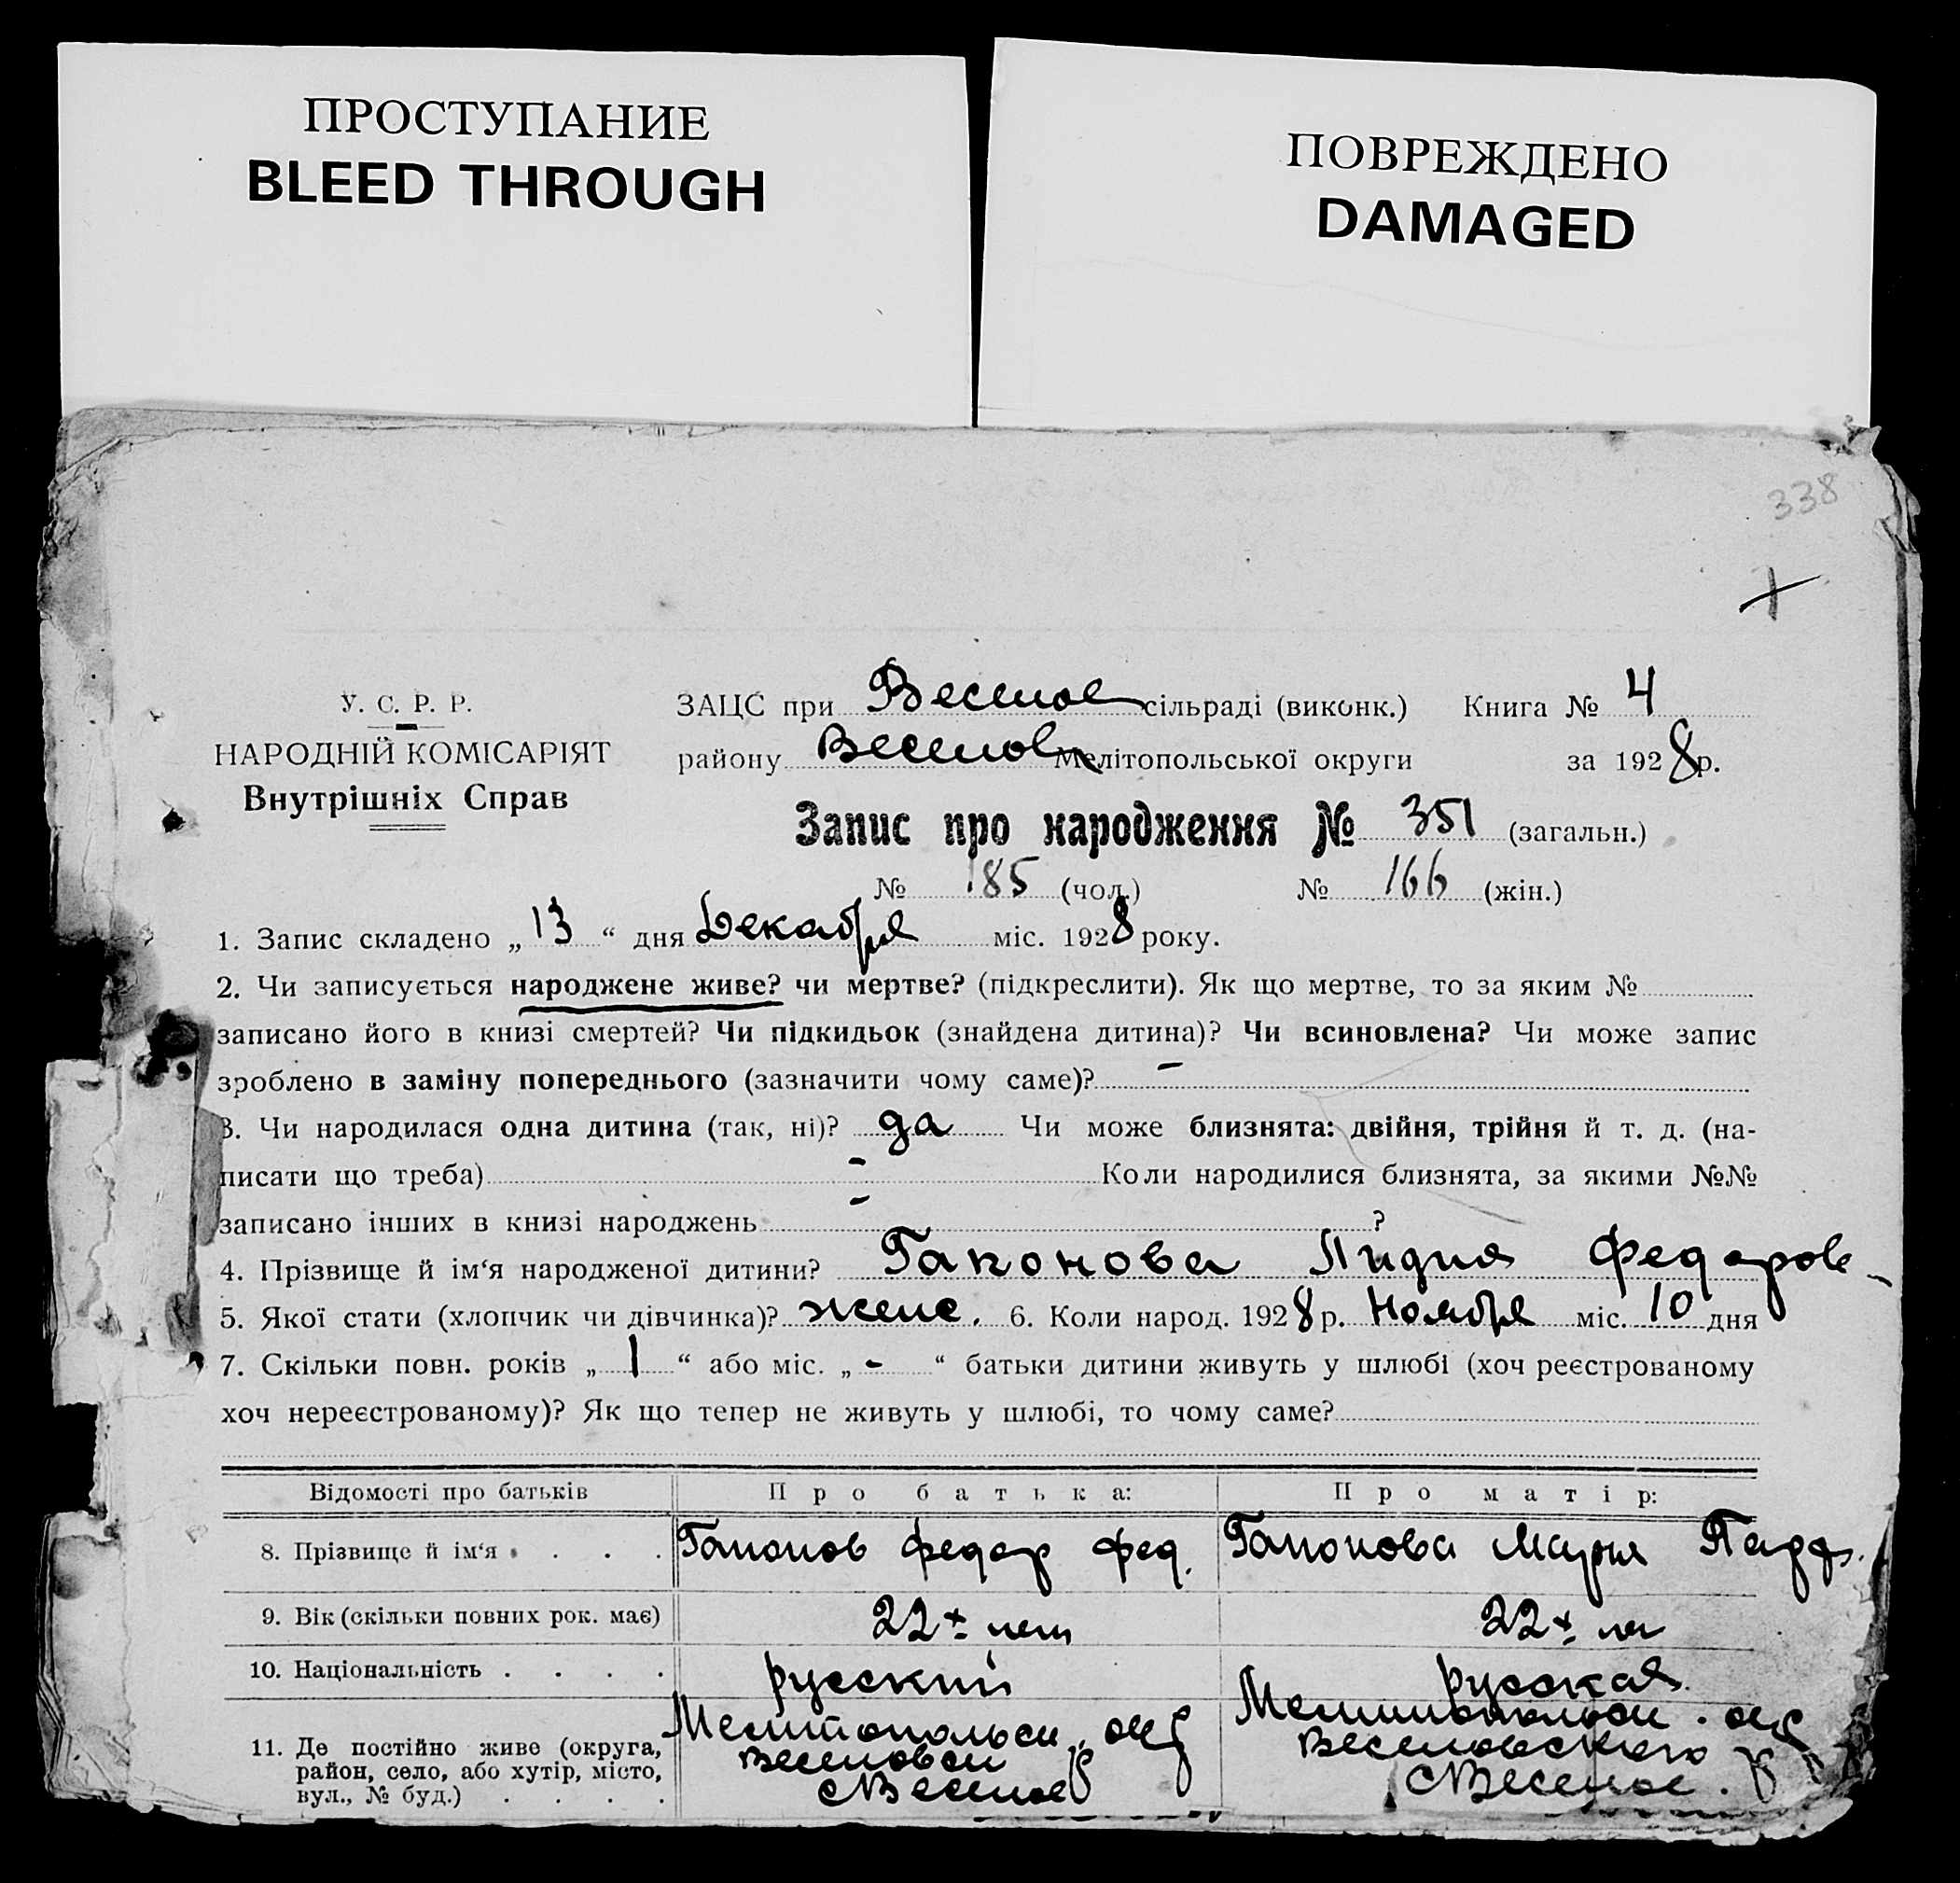 ПРОСТУПАНИЕ
BLEED THROUGH
ПОВРЕЖДЕНО
DAMAGED
338
У. С. Р. Р.
НАРОДНІЙ КОМІСАРІЯТ
Внутрішніх Справ
ЗАЦС при Веселое сільраді (виконк.) Книга № 4
району Веселов Мелітопольської округи за 1928 р.
Запис про народження № 351 (загальн.)
№ 185 (чол.) № 166 (жін.)
1. Запис складено „13“ дня Декабря міс. 1928 року.
2. Чи записується народжене живе? чи мертве? (підкреслити). Як що мертве, то за яким №
записано його в книзі смертей? Чи підкидьок (знайдена дитина)? Чи всиновлена? Чи може запис
зроблено в заміну попереднього (зазначити чому саме)? -
3. Чи народилася одна дитина (так, ні)? да Чи може близнята: двійня, трійня й т. д. (на-
писати що треба) - Коли народилися близнята, за якими №№
записано інших в книзі народжень - ?
4. Прізвище й ім‘я народженої дитини? Гапонова Лидия Федоров-
5. Якої стати (хлопчик чи дівчинка)? женс. 6. Коли народ. 1928 р. Ноября міс. 10 дня
7. Скільки повн. років „1“ або міс. „-“ батьки дитини живуть у шлюбі (хоч реєстрованому
хоч нереєстрованому)? Як що тепер не живуть у шлюбі, то чому саме?
Відомості про батьків Про батька: Про матір:
8. Прізвище й ім‘я . . . . Гапонов Федор Фед. Гапонова Мария
9. Вік (скільки повних рок. має) 22х лет 22х ле
10. Національність . . . . русский русская
11. Де постійно живе (округа, Мелитопольск. окр Мелитопольск. окр
район, село, або хутір, місто, Веселовск р Веселовского р
вул., № буд.) . . . . с Веселое с Веселое.